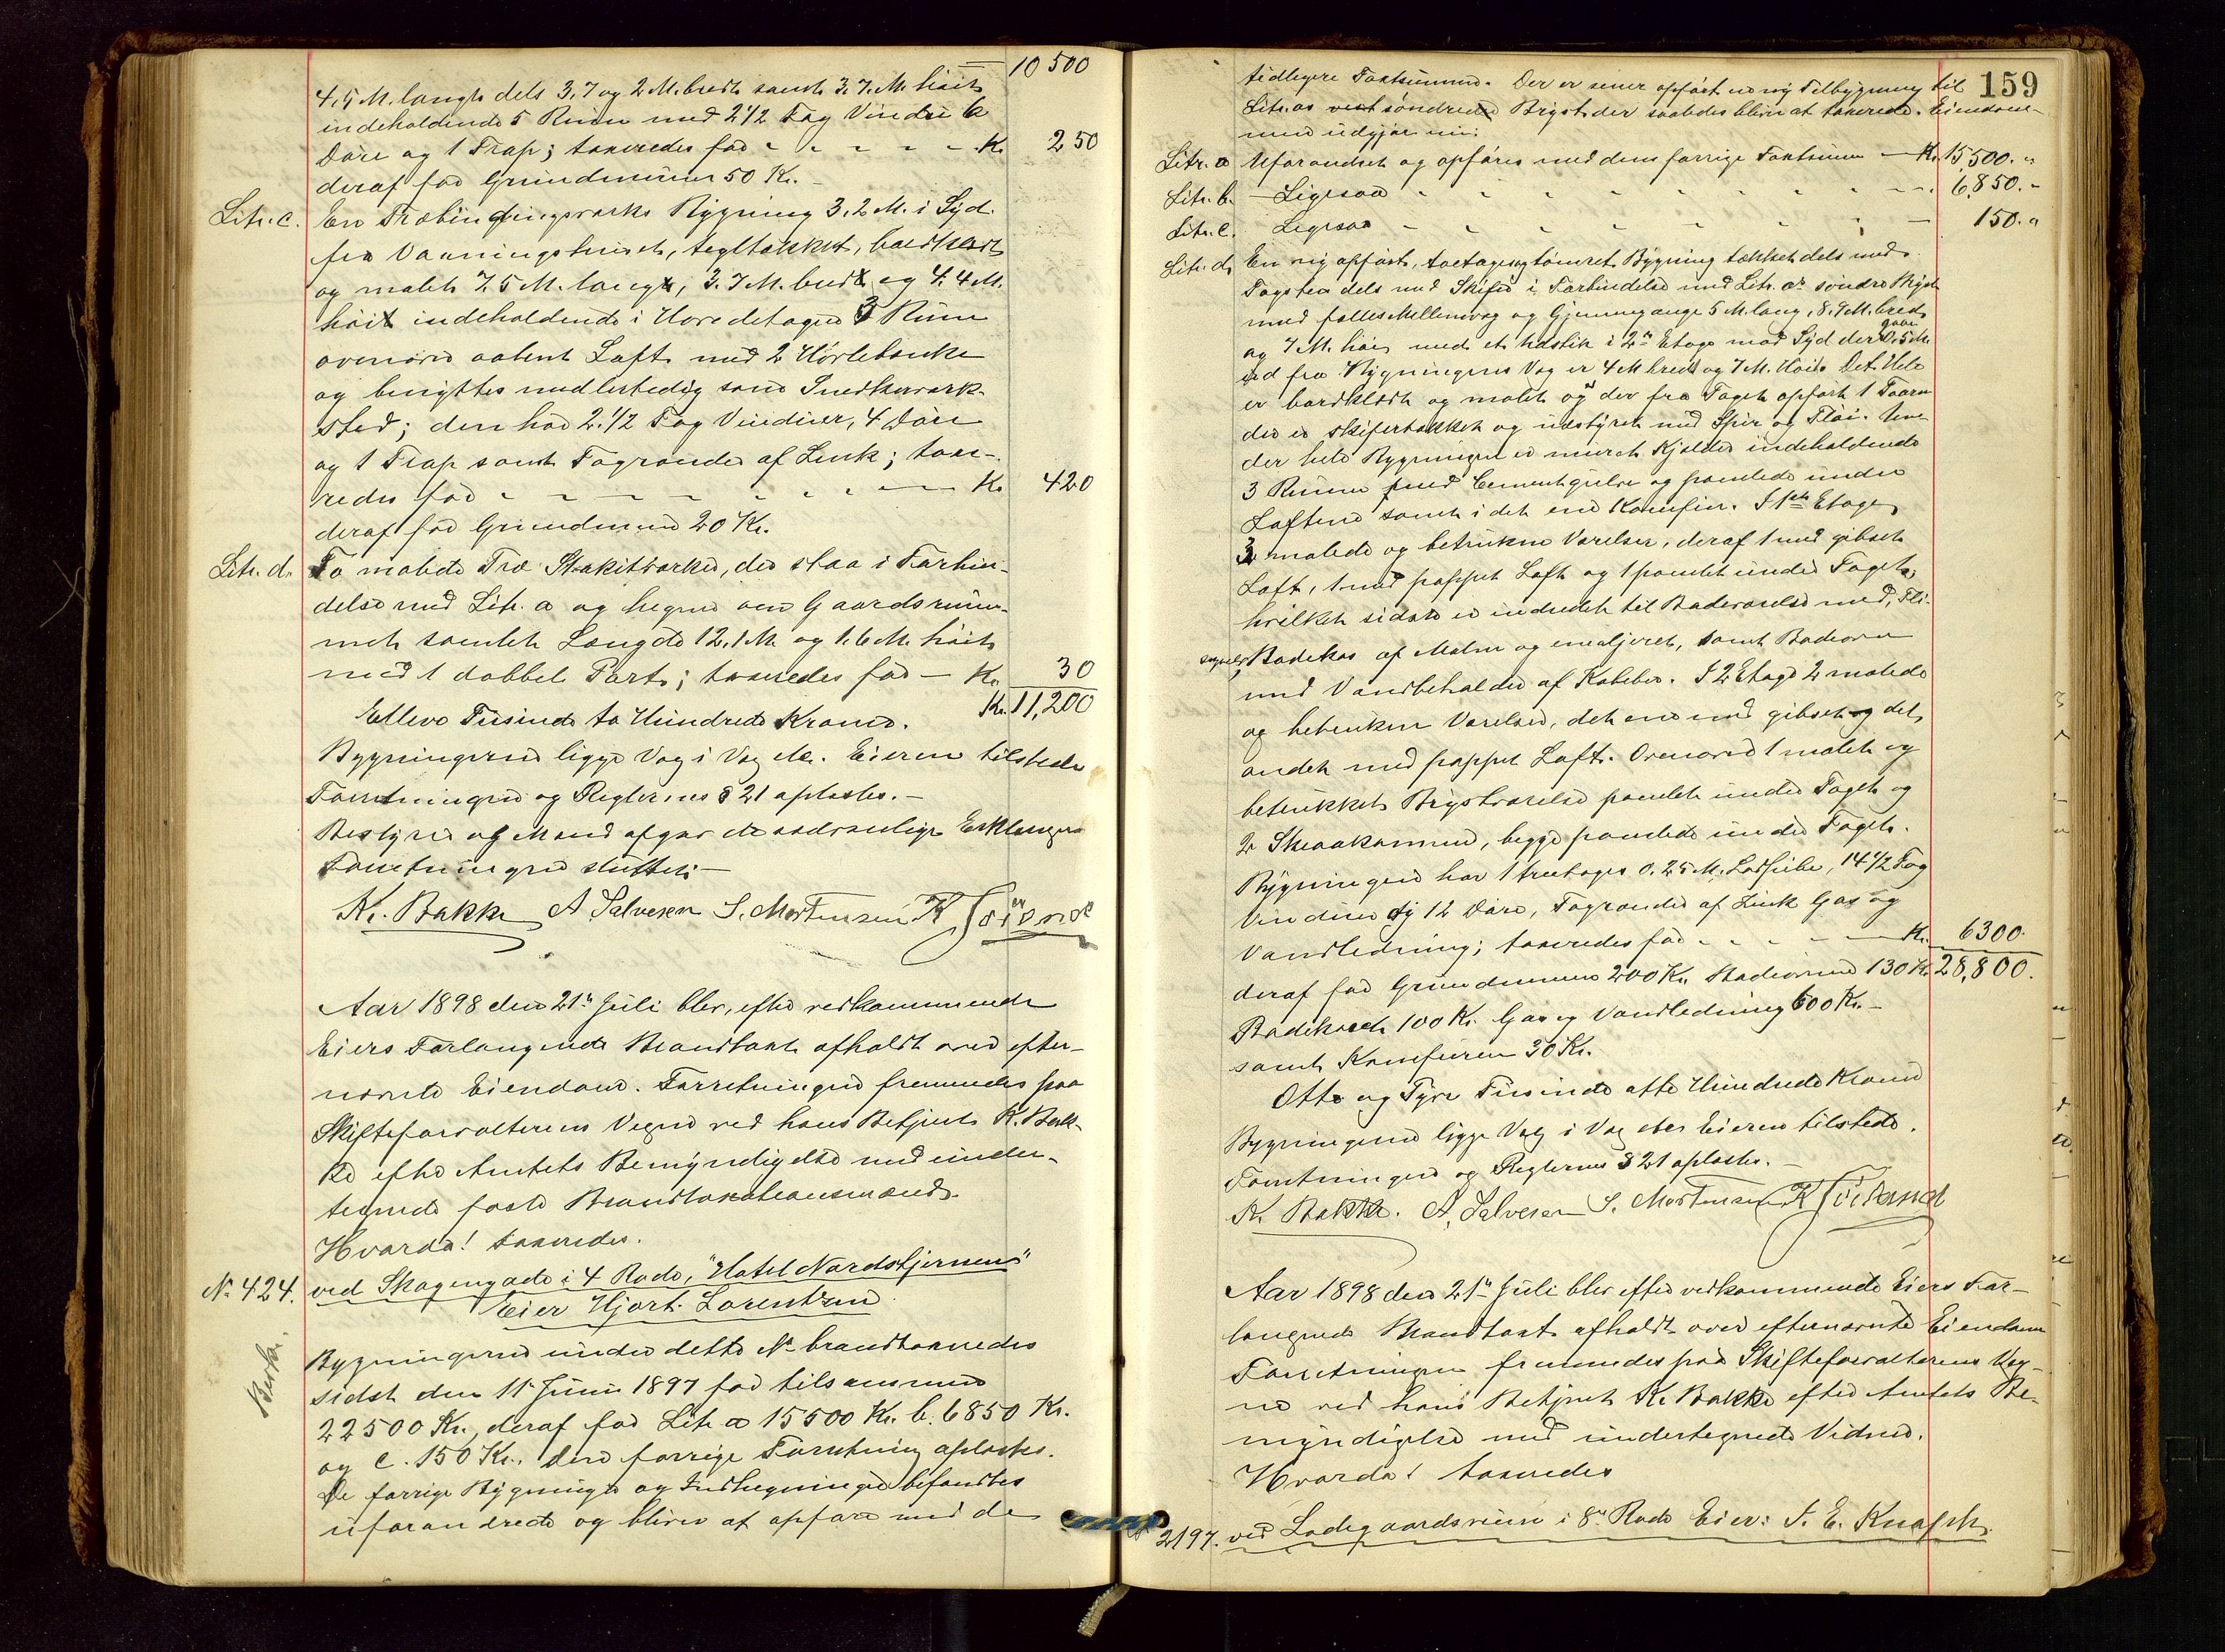 10 500
4,5 M. langt dels 3,7 og 2 M. bredt samt 3.7. M. høit
indeholdende 5 Rum med 2 1/2 Fag Vinduer 6
Døre og 1 Trap; taxeredes for - - - - - Kr. 250
deraf for Grundmuren 50 Kr. -
Litr. c. En Træbindingsværks Bygning 3.2 M. i Syd.
fra Vaaningshuset, tegltækket, bordklædt
og malet 7.5 M. langt, 3.7 M. bredt og 4.4 M.
høit indeholdende i Hovedetagen 3 Rum
ovenover aabent Loft med 2 Høvlebænke
og benyttes midlertidig som Snedkerværk-
sted; den har 2.1/2 Fag Vinduer, 4 Døre
og 1 Trap samt Tagrender af Zink; taxe-
redes for - - - - - - - Kr. 420
deraf for Grundmuren 20 Kr.
Litr. d. To malede Træ Stakitværker, der staa i Forbin-
delse med Litr. a og hegner om Gaardsrum-
met samlet Længde 12.1 M. og 1.6 M. høit
med 1 dobbel Port; taxeredes for - Kr. 30
Kr. 11,200
Elleve Tusinde to Hundrede Kroner.
Bygningerne ligge Væg i Væg etc. Eieren tilstede
Forretningen og Reglernes § 21 oplæstes. -
Bestyrer og Mænd afgav de sædvanlige Erklæringer
Forretningen sluttet. -
K. Bakke A Salvesen S. Mortensen K Sørland
Aar 1898 den 21de Juli blev, efter vedkommende
Eiers Forlangende Brandtaxt afholdt over efter-
nævnte Eiendom. Forretningen fremmedes paa
Skifteforvalterens Vegne ved hans Betjent K. Bak-
ke efter Amtets Bemyndigelse med under-
tegnede faste Brandtaxationsmænd.
Hvorda! taxeredes.
No 424. ved Skagengade i 4 Rode, "Hotel Nordstjernen"
Eier Hjort. Lorentzen
Bygningerne under dette No brandtaxeredes
sidst den 11 Juni 1897 for tilsammen
22500 Kr., deraf for Litr a 15500 Kr. b. 6850 Kr.
og c. 150 Kr. Den forrige Forretning oplæstes.
De forrige Bygninger og Indhegninger befandtes
uforandrede og bliver at opføre med de
159
tidligere Taxtsummer. Der er senere opført en ny Tilbygning til
Litr. as søndre Bryst der saaledes bliver at taxerede. Eiendom-
men udgjør nu:
Litr. a Uforandret og opføres med den forrige Taxtsum - Kr. 15,500. "
Litr. b. - Ligesaa - - - - - - - - 6,850. -
Litr. c. Ligesaa - - - - - - 150. "
Litr. d. En ny opført, toetages tømret Bygning tækket dels med
Tagsten dels med Skifer i Forbindelse med Litr. as søndre Bryst
med fælles Mellemvæg og Gjennemgange 5 M. lang, 8.9 M. bred
og 7 M. høi med et Udstik i 2den Etage mod Syd der gaar 0.5 M.
ud fra Bygningens Væg er 4 M bredt og 7 M. Høit. Det Hele
er bordklædt og malet og der fra Taget opført 1 Taarn
der er skifertækket og udstyret med Spir og Fløi. Un-
der hele Bygningen er muret Kjelder indeholdende
3 Rum med Cementgulve og panelede under
Loftene samt i det ene Komfur. I 1ste Etage
3 malede og betrukne Værelser, deraf 1 med gibset
Loft, 1 med pappet Loft og 1 panelet under Taget;
hvilket sidste er indredet til Badeværelse med, Fli-
Badekar af Malm og emaljeret, samt Badeovn
med Vandbeholder af Kobber. I 2 Etage 2 malede
og betrukne Værelser, det ene med gibset og det
andet med pappet Loft. Ovenover 1 malet og
betrukket Brystværelse panelet under Taget og
2 Skraakammer, begge panelede under Taget.
Bygningen har 1 treetages 0.25 M. Lodpibe, 14 1/2 Fag
Vinduer og 12 Døre, Tagrender af Zink Gas og
Vandledning; taxeredes for - - - - - Kr. 6300.
deraf for Grundmuren 200 Kr. Badeovnen 130 Kr. 28,800.
Badekaret 100 Kr. Gas og Vandledning 600 Kr. -
samt Komfuren 30 Kr.
Otte og Tyve Tusinde otte Hundrede Kroner
Bygningerne ligge Væg i Væg etc. Eieren tilstede.
Forretningen og Reglernes § 21 oplæstes. -
K. Bakke. A. Salvesen S. Mortensen K Sørland
Aar 1898 den 21de Juli blev efter vedkommende Eiers For-
langende Brandtaxt afholdt over efternævnte Eiendom
Forretningen fremmedes paa Skifteforvalterens Veg-
ne ved hans Betjent K. Bakke efter Amtets Be-
myndigelse med undertegnede Vidner.
Hvorda! taxeredes
2197. ved Ladegaardsveien i 8de Rode Eier: